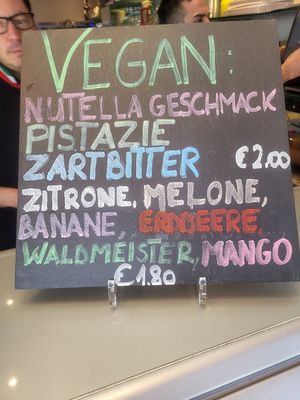 VEGAN:
NUTELLA GESCHMACK
PISTAZIE
ZARTBITTER €2.00
ZITRONE, MELONE,
BANANE, ERDBEERE,
WALDMEISTER, MANGO
€1.80